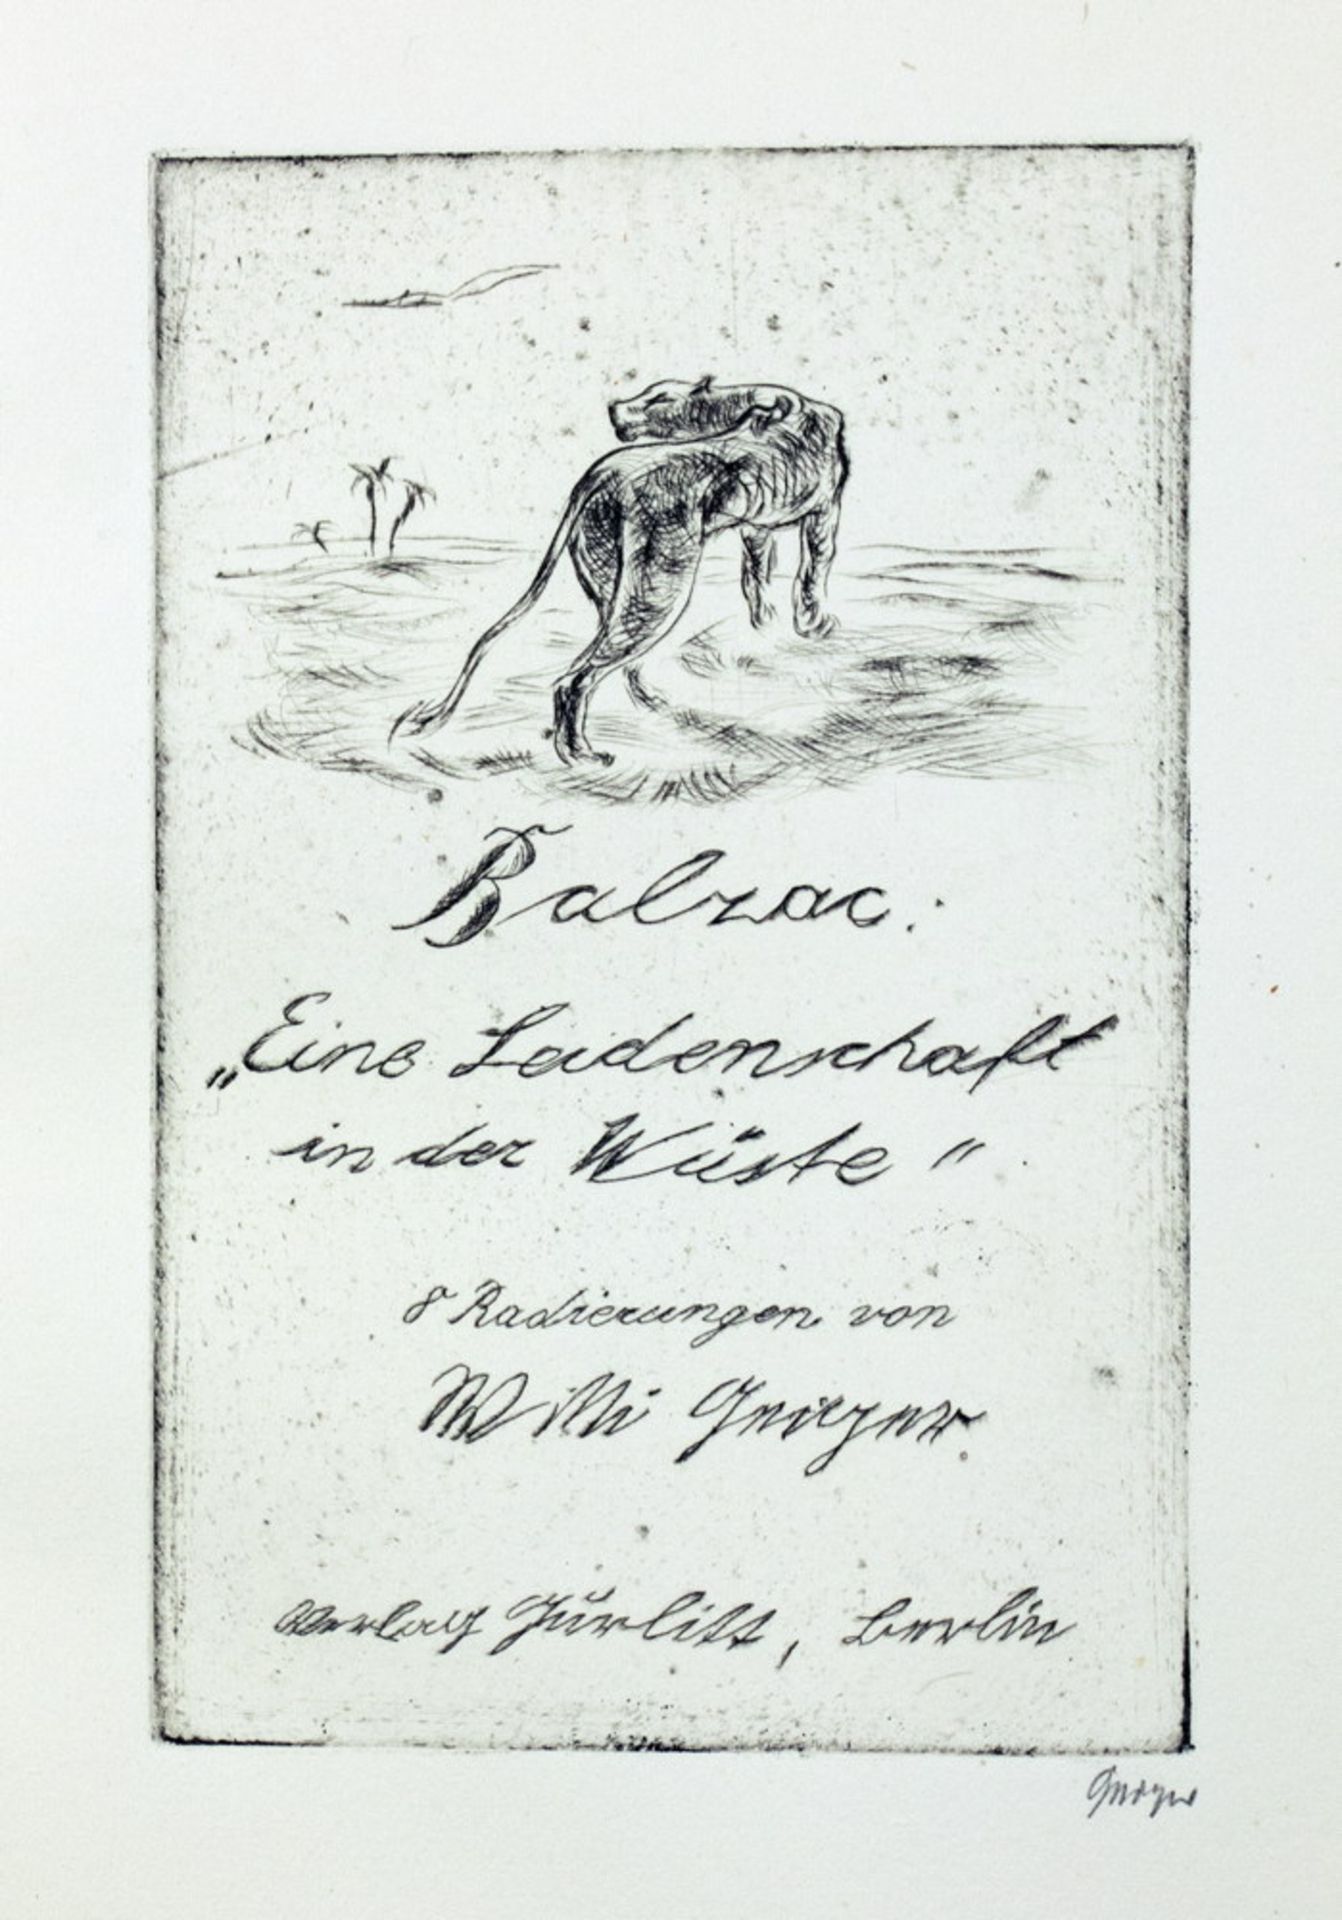 Balzac:
„Eine Leidenschaft
in der Wüste"
8 Radierungen von
Willi Geiger.
Verlag Gurlitt, Berlin
Geiger